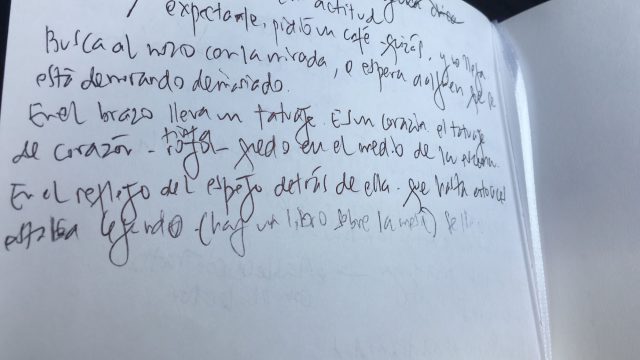 en actitud
expectante, pidió un café quizás, y no llega
Busca al mozo con la mirada, o espera a alguien que se
está demorando demasiado.
En el brazo lleva un tatuaje. Es un corazón el tatuaje
de corazón - tinta roja - quedo en el medio de la escena
En el reflejo del espejo detrás de ella. que hasta entonces
estaba leyendo (hay un libro sobre la mesa)